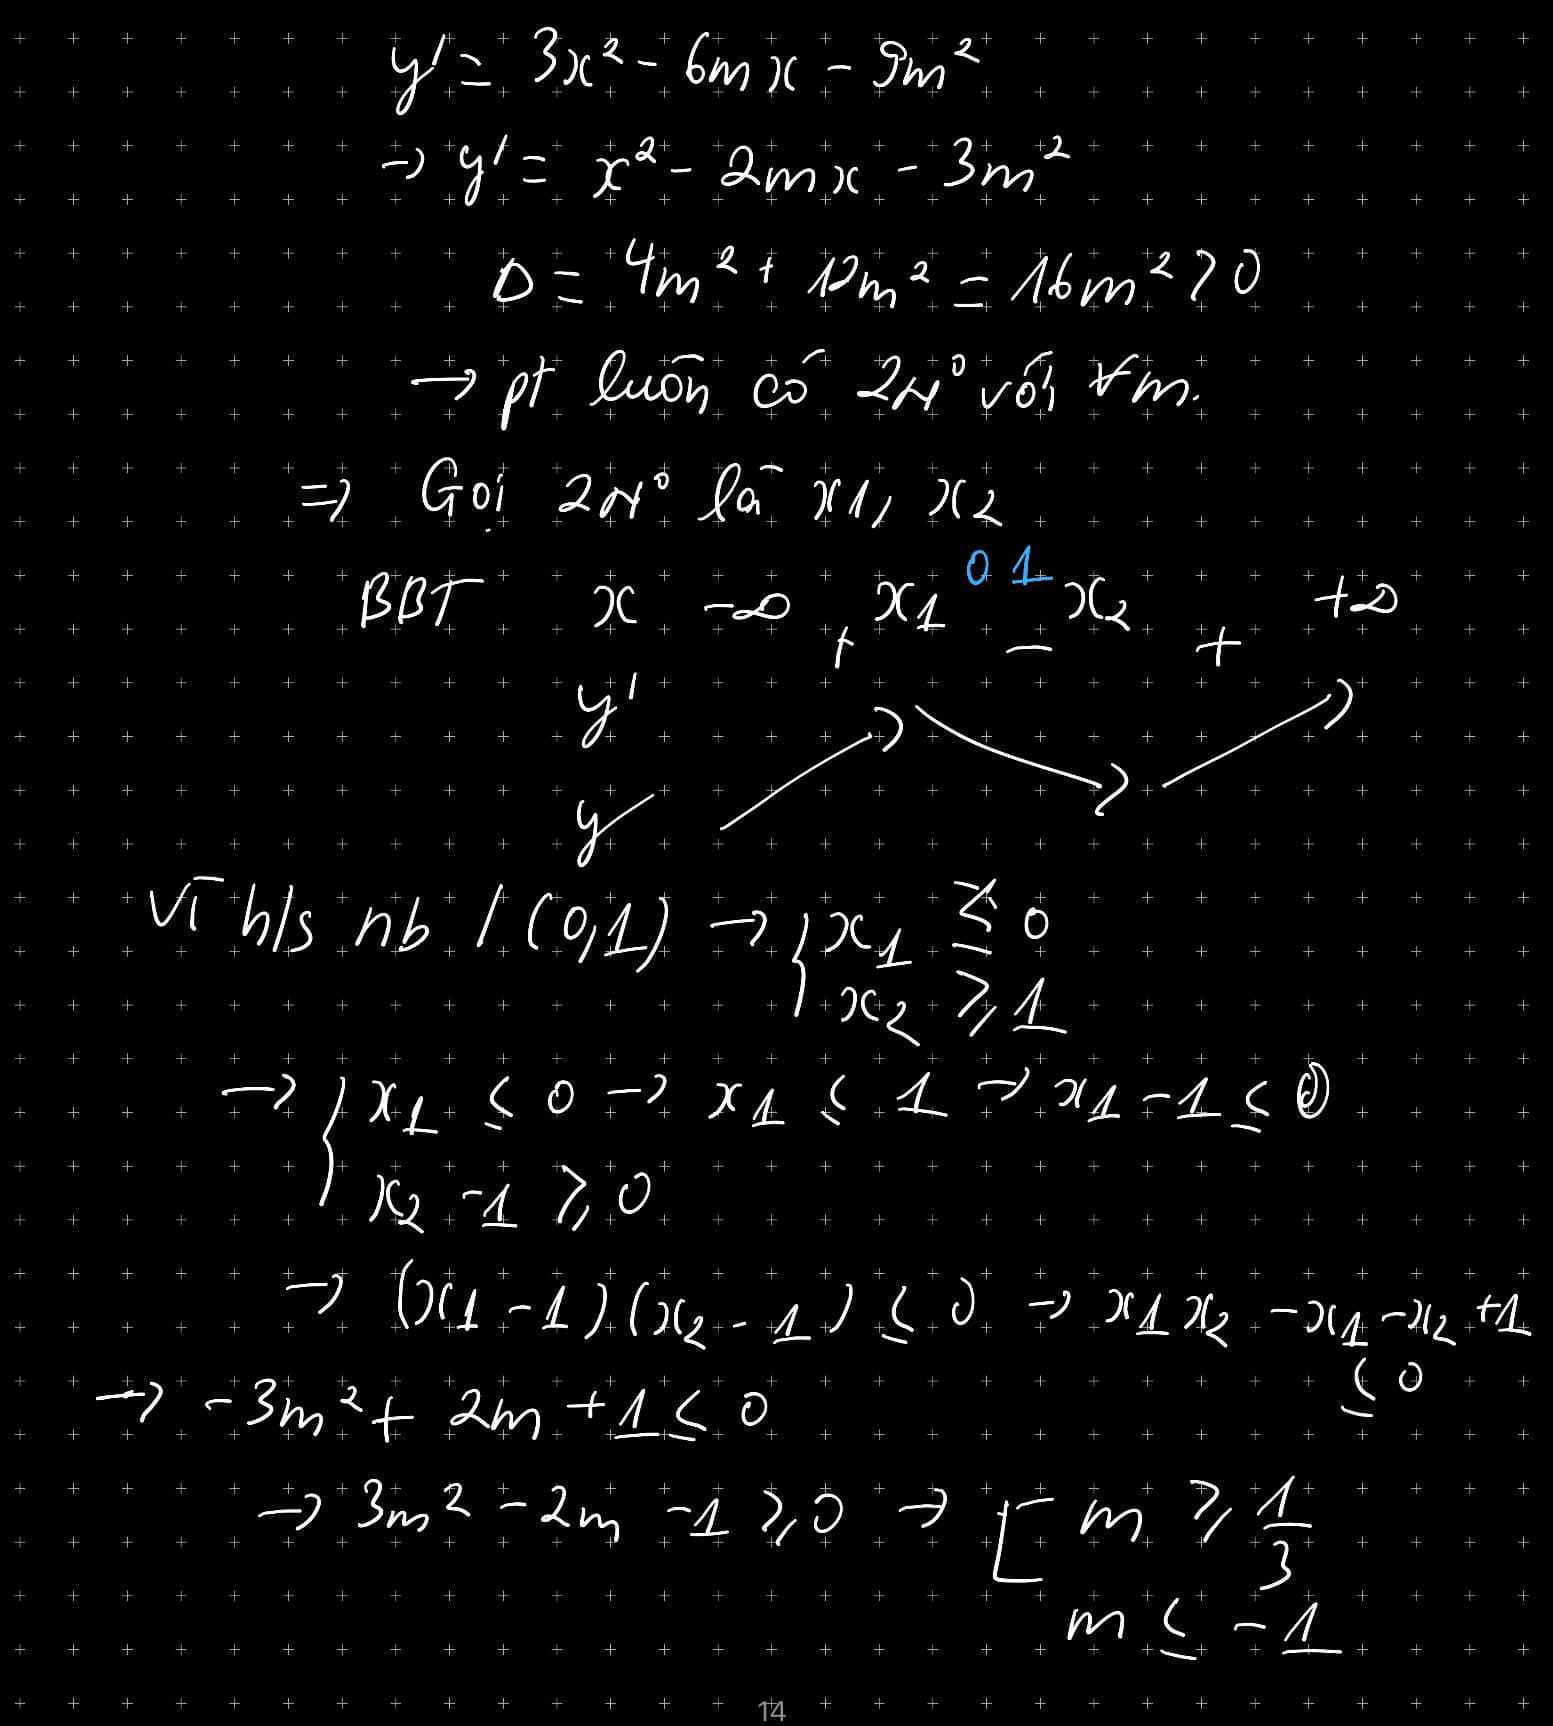 y' = 3x² - 6mx - 9m²
→ y' = x² - 2mx - 3m²
Δ = 4m² + 12m² = 16m² > 0
→ pt luôn có 2N⁰ với ∀m.
⇒ Gọi 2N⁰ là x1, x2
0 1
BBT x -∞ x1 x2 +∞
+ - +
y'
y
Vì h/s nb / (0,1) → { x1 ≤ 0
x2 ≥ 1
→ { x1 ≤ 0 → x1 ≤ 1 → x1 - 1 ≤ 0
x2 - 1 ≥ 0
→ (x1 - 1).(x2 - 1) ≤ 0 → x1x2 - x1 - x2 + 1
≤ 0
→ -3m² + 2m + 1 ≤ 0
→ 3m² - 2m - 1 ≥ 0 → [ m ≥ 1/3
m ≤ -1
14